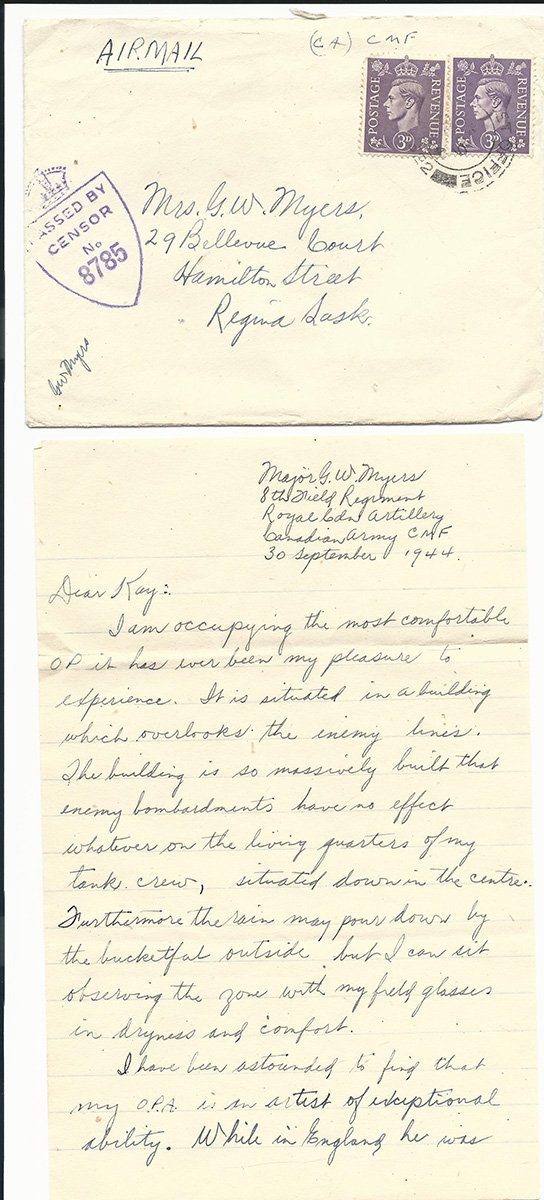 AIRMAIL
(CA) CMF
POSTAGE REVENUE
3D
POSTAGE REVENUE
3D
OFFICE
PASSED BY
CENSOR
No
8785
Mrs. G. W. Myers,
29 Bellevue Court
Hamilton Street
Regina Sask.
GW Myers
Major G. W. Myers
8th Field Regiment
Royal Cdn Artillery
Canadian Army CMF
30 September 1944.
Dear Kay:
I am occupying the most comfortable
OP it has ever been my pleasure to
experience. It is situated in a building
which overlooks the enemy lines.
The building is so massively built that
enemy bombardments have no effect
whatever on the living quarters of my
tank crew, situated down in the centre.
Furthermore the rain may pour down by
the bucketful outside but I can sit
observing the zone with my field glasses
in dryness and comfort.
I have been astounded to find that
my O.P.A. is an artist of exceptional
ability. While in England he was